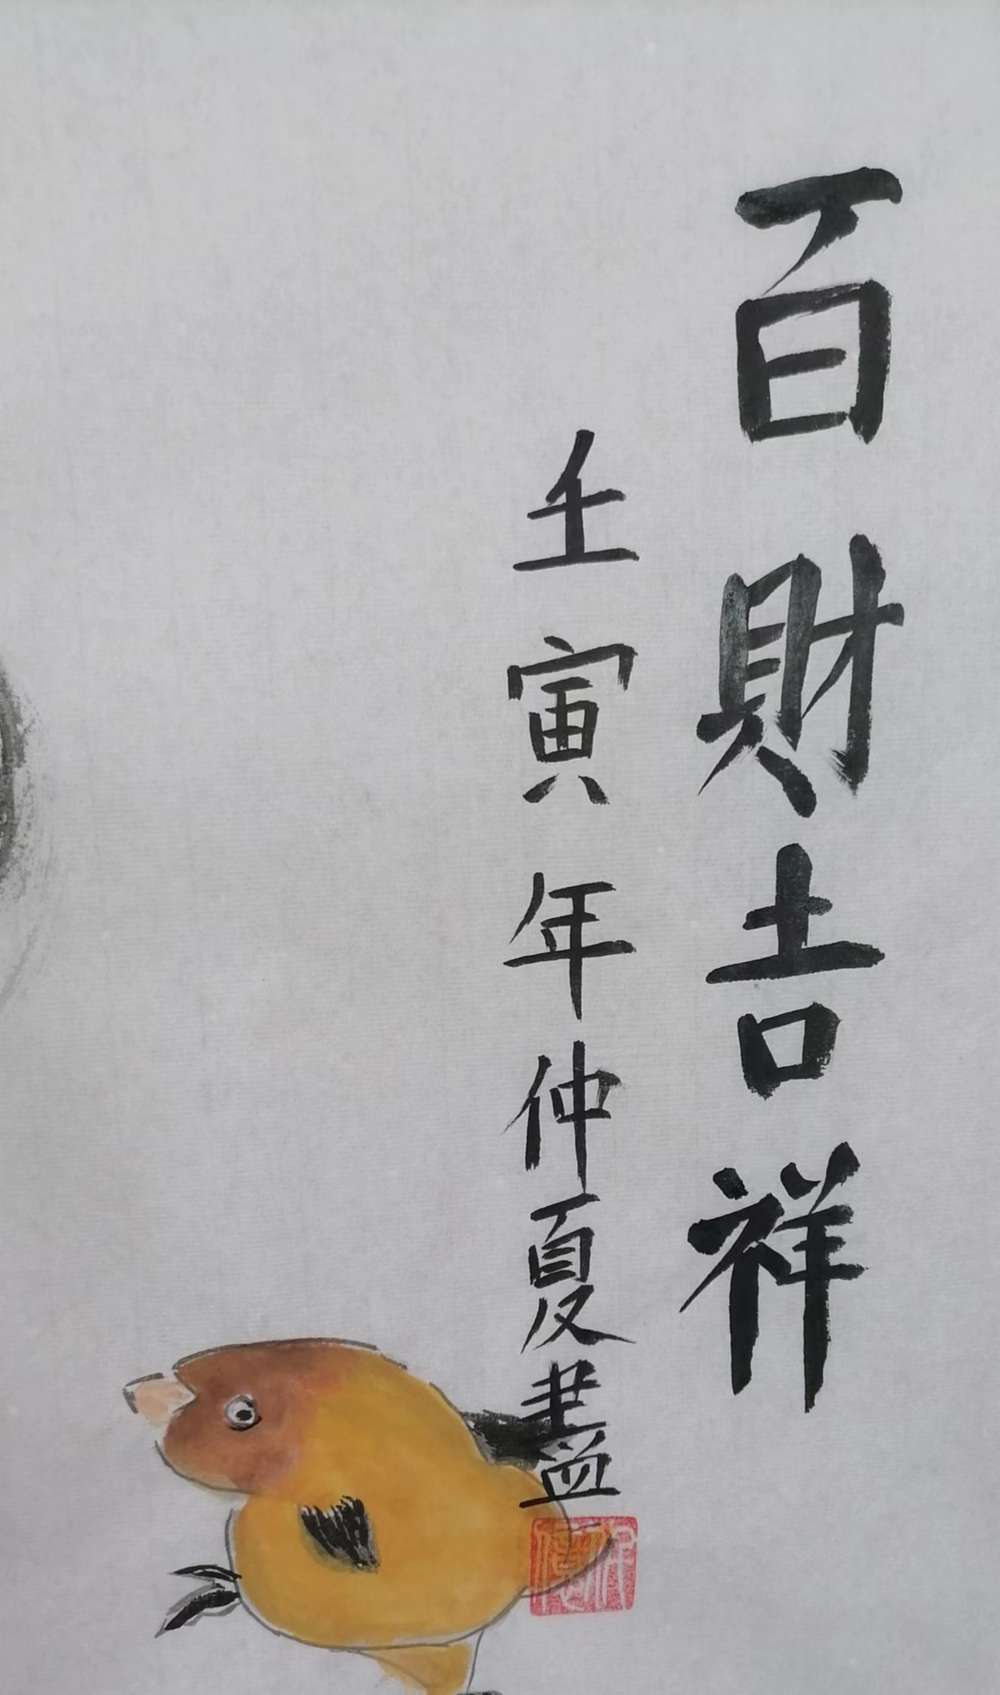 百財吉祥
壬寅年仲夏